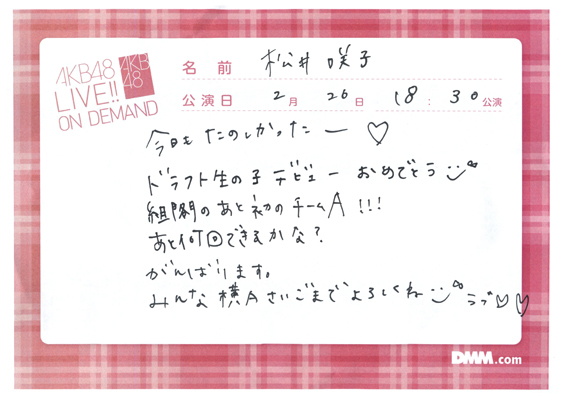 AKB48
LIVE!!
ON DEMAND
AKB
48
名前 松井咲子
公演日 2月 26日 18:30公演
今日もたのしかったー♡
ドラフト生の子デビューおめでとう
組閣のあと初のチームA!!!
あと何回できるかな?
がんばります。
みんな横Aさいごまでよろしくね ラブ♡♡
DMM.com